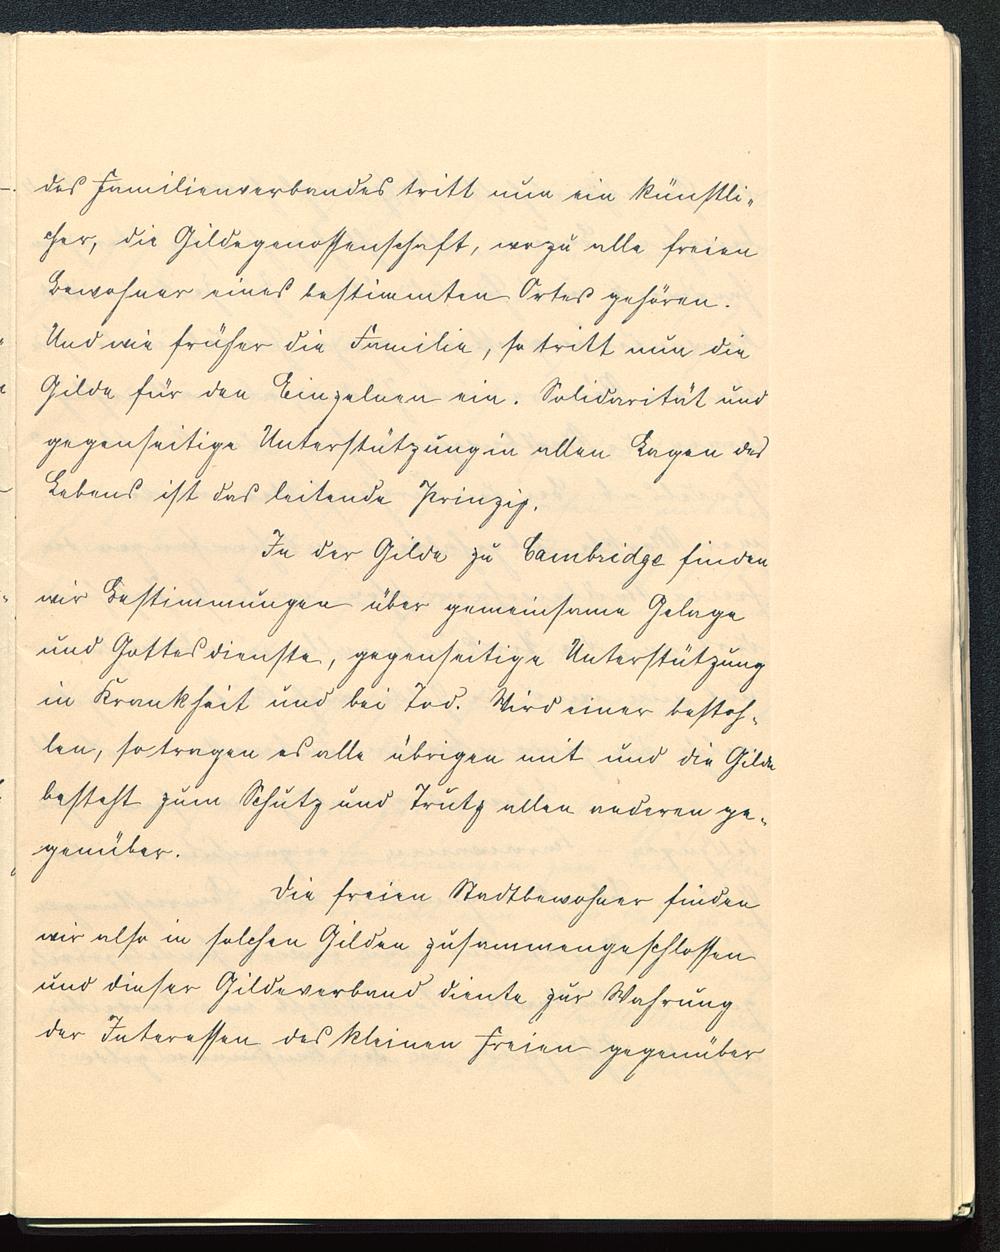 des Familienverbandes tritt nun ein künstli-
cher, die Gildegenossenschaft, wozu alle freien
Bewohner eines bestimmten Ortes gehören.
Und wie früher die Familie, so tritt nun die
Gilde für den Einzelnen ein. Solidarität und
gegenseitige Unterstützung in allen Lagen des
Lebens ist das leitende Prinzip.
In der Gilde zu Cambridge finden
wir Bestimmungen über gemeinsame Gelage
und Gottesdienste, gegenseitige Unterstützung
in Krankheit und bei Tod. Wird einer bestoh-
len, so tragen es alle übrigen mit und die Gilde
besteht zum Schutz und Trutz allen anderen ge-
genüber.
Die freien Stadtbewohner finden
wir also in solchen Gilden zusammengeschlossen
und dieser Gildeverband diente zur Wahrung
der Interessen des kleinen Freien gegenüber